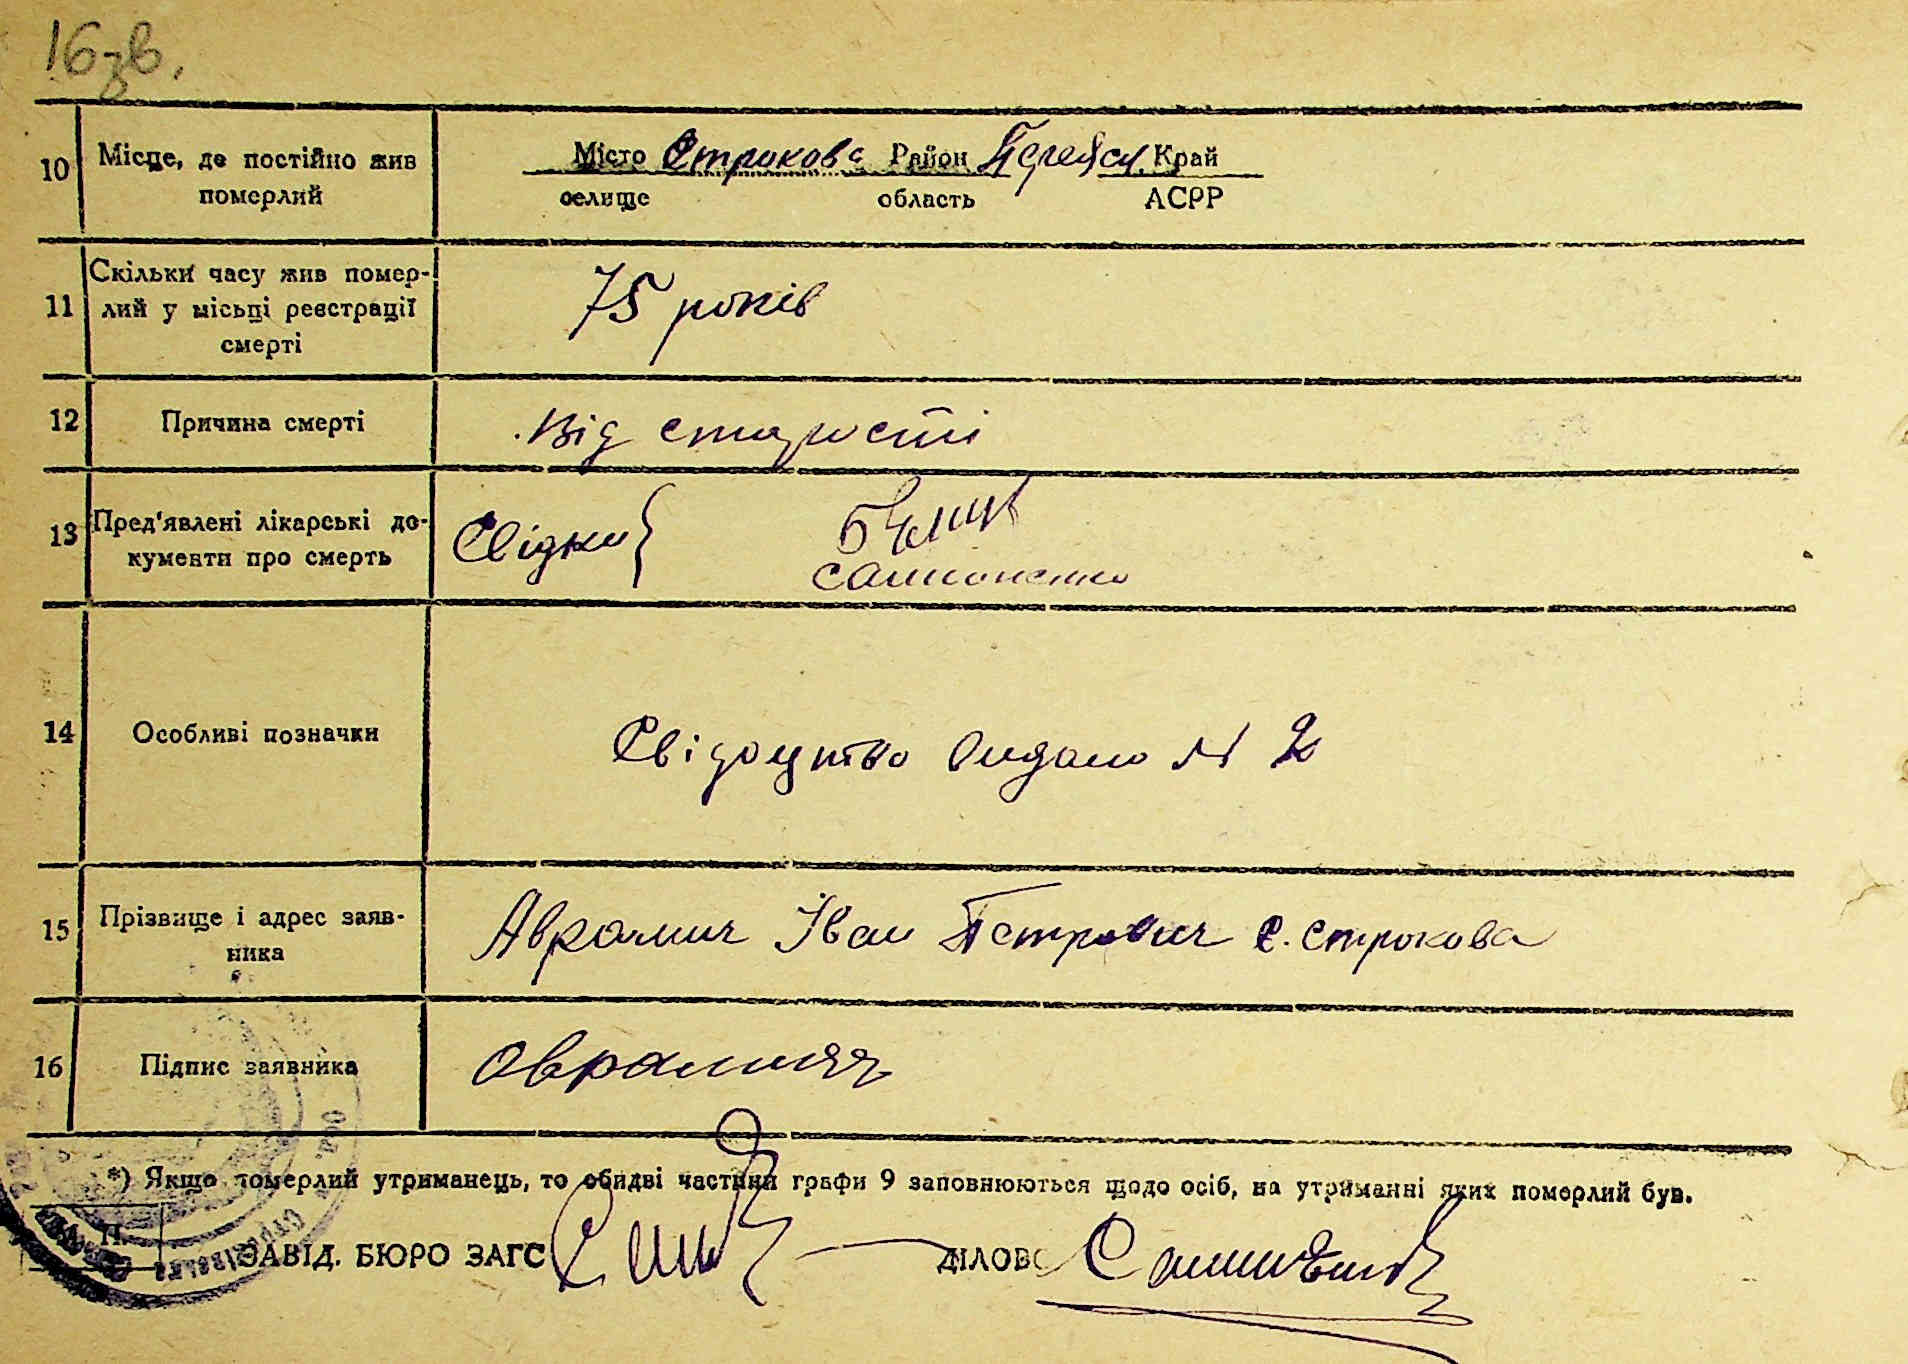 16 зв.
10 Місце, де постійно жив Місто Строкова Район Переясл. Край
померлий селище область АСРР
Скільки часу жив помер-
11 лий у місьці реєстрації 75 років
смерті
12 Причина смерті Від старости
13 Пред'явлені лікарські до- Свідки {
кументи про смерть
14 Особливі позначки Свідоцтво видано N 2
15 Прізвище і адрес заяв- Аврамич Іван Петрович с. Строкова
ника
16 Підпис заявника
*) Якщо померлий утриманець, то обидві частини графи 9 заповнюються щодо осіб, на утриманні яких померлий був.
М. П.
ЗАВІД. БЮРО ЗАГС ДІЛОВ